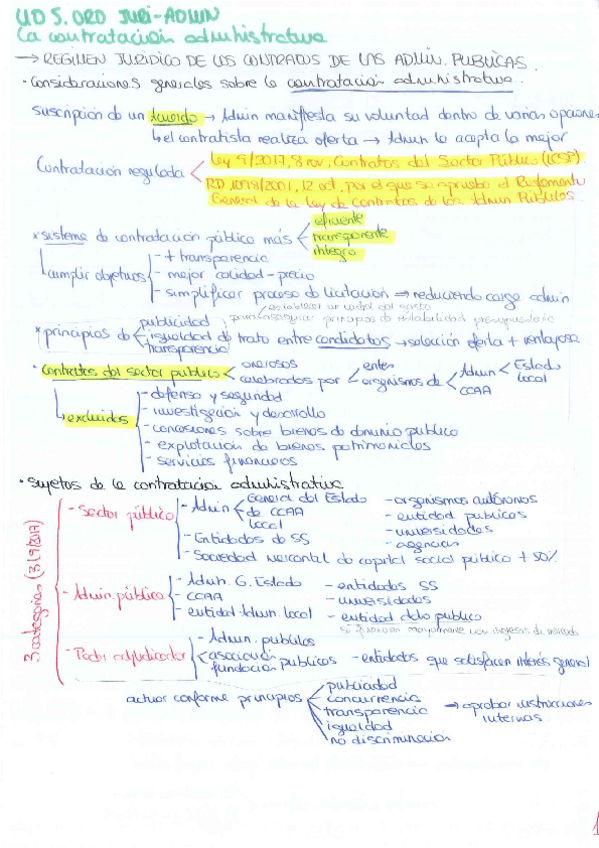 UD 5. ORD JURI-ADMIN
La contratación administrativa
→ REGIMEN JURIDICO DE LOS CONTRATOS DE LAS ADMIN. PUBLICAS.
· Consideraciones generales sobre la contratación administrativa.
suscripción de un acuerdo → Admin manifiesta su voluntad dentro de varias opciones
↳ el contratista realiza oferta → Admin la acepta la mejor
Contratación regulada < Ley 9/2017, 8 nov, Contratos del Sector Público (LCSP)
RD 1098/2001, 12 oct, por el que se aprueba el Reglamento
General de la Ley de Contratos de las Admin Públicas.
* sistema de contratación pública más < eficiente
transparente
integro
cumplir objetivos - + transparencia
- mejor calidad-precio
- simplificar proceso de licitación ⇒ reduciendo carga admin
establecer un control del gasto
para conseguir principios de estabilidad presupuestaria
* principios de < publicidad
igualdad de trato entre candidatos → selección oferta + ventajosa
transparencia
· contratos del sector publico < onerosos
celebrados por < entes
organismos de < Admin < Estado
Local
CCAA
↳ excluidos - defensa y seguridad
- investigación y desarrollo
- concesiones sobre bienes de dominio publico
- explotación de bienes patrimoniales
- servicios financieros
· sujetos de la contratación administrativa
3 categorías (3 L9/2017)
- Sector público - Admin < General del Estado
de CCAA
local
- organismos autónonos
- entidad publicas
- universidades
- agencias
- Entidades de SS
- Sociedad mercantil de capital social público + 50%
- Admin. pública - Admin. G. Estado
- CCAA
- entidad Admon. local
- entidades SS
- universidades
- entidad dcho publico
si financian mayormente con ingresos de mercado
- Poder adjudicador - Admin. publicas
asociación
fundación publicas - entidades que satisfacen interés general
actuar conforme principios < publicidad
concurrencia
transparencia
igualdad
no discriminación
→ aprobar instrucciones
internas
1